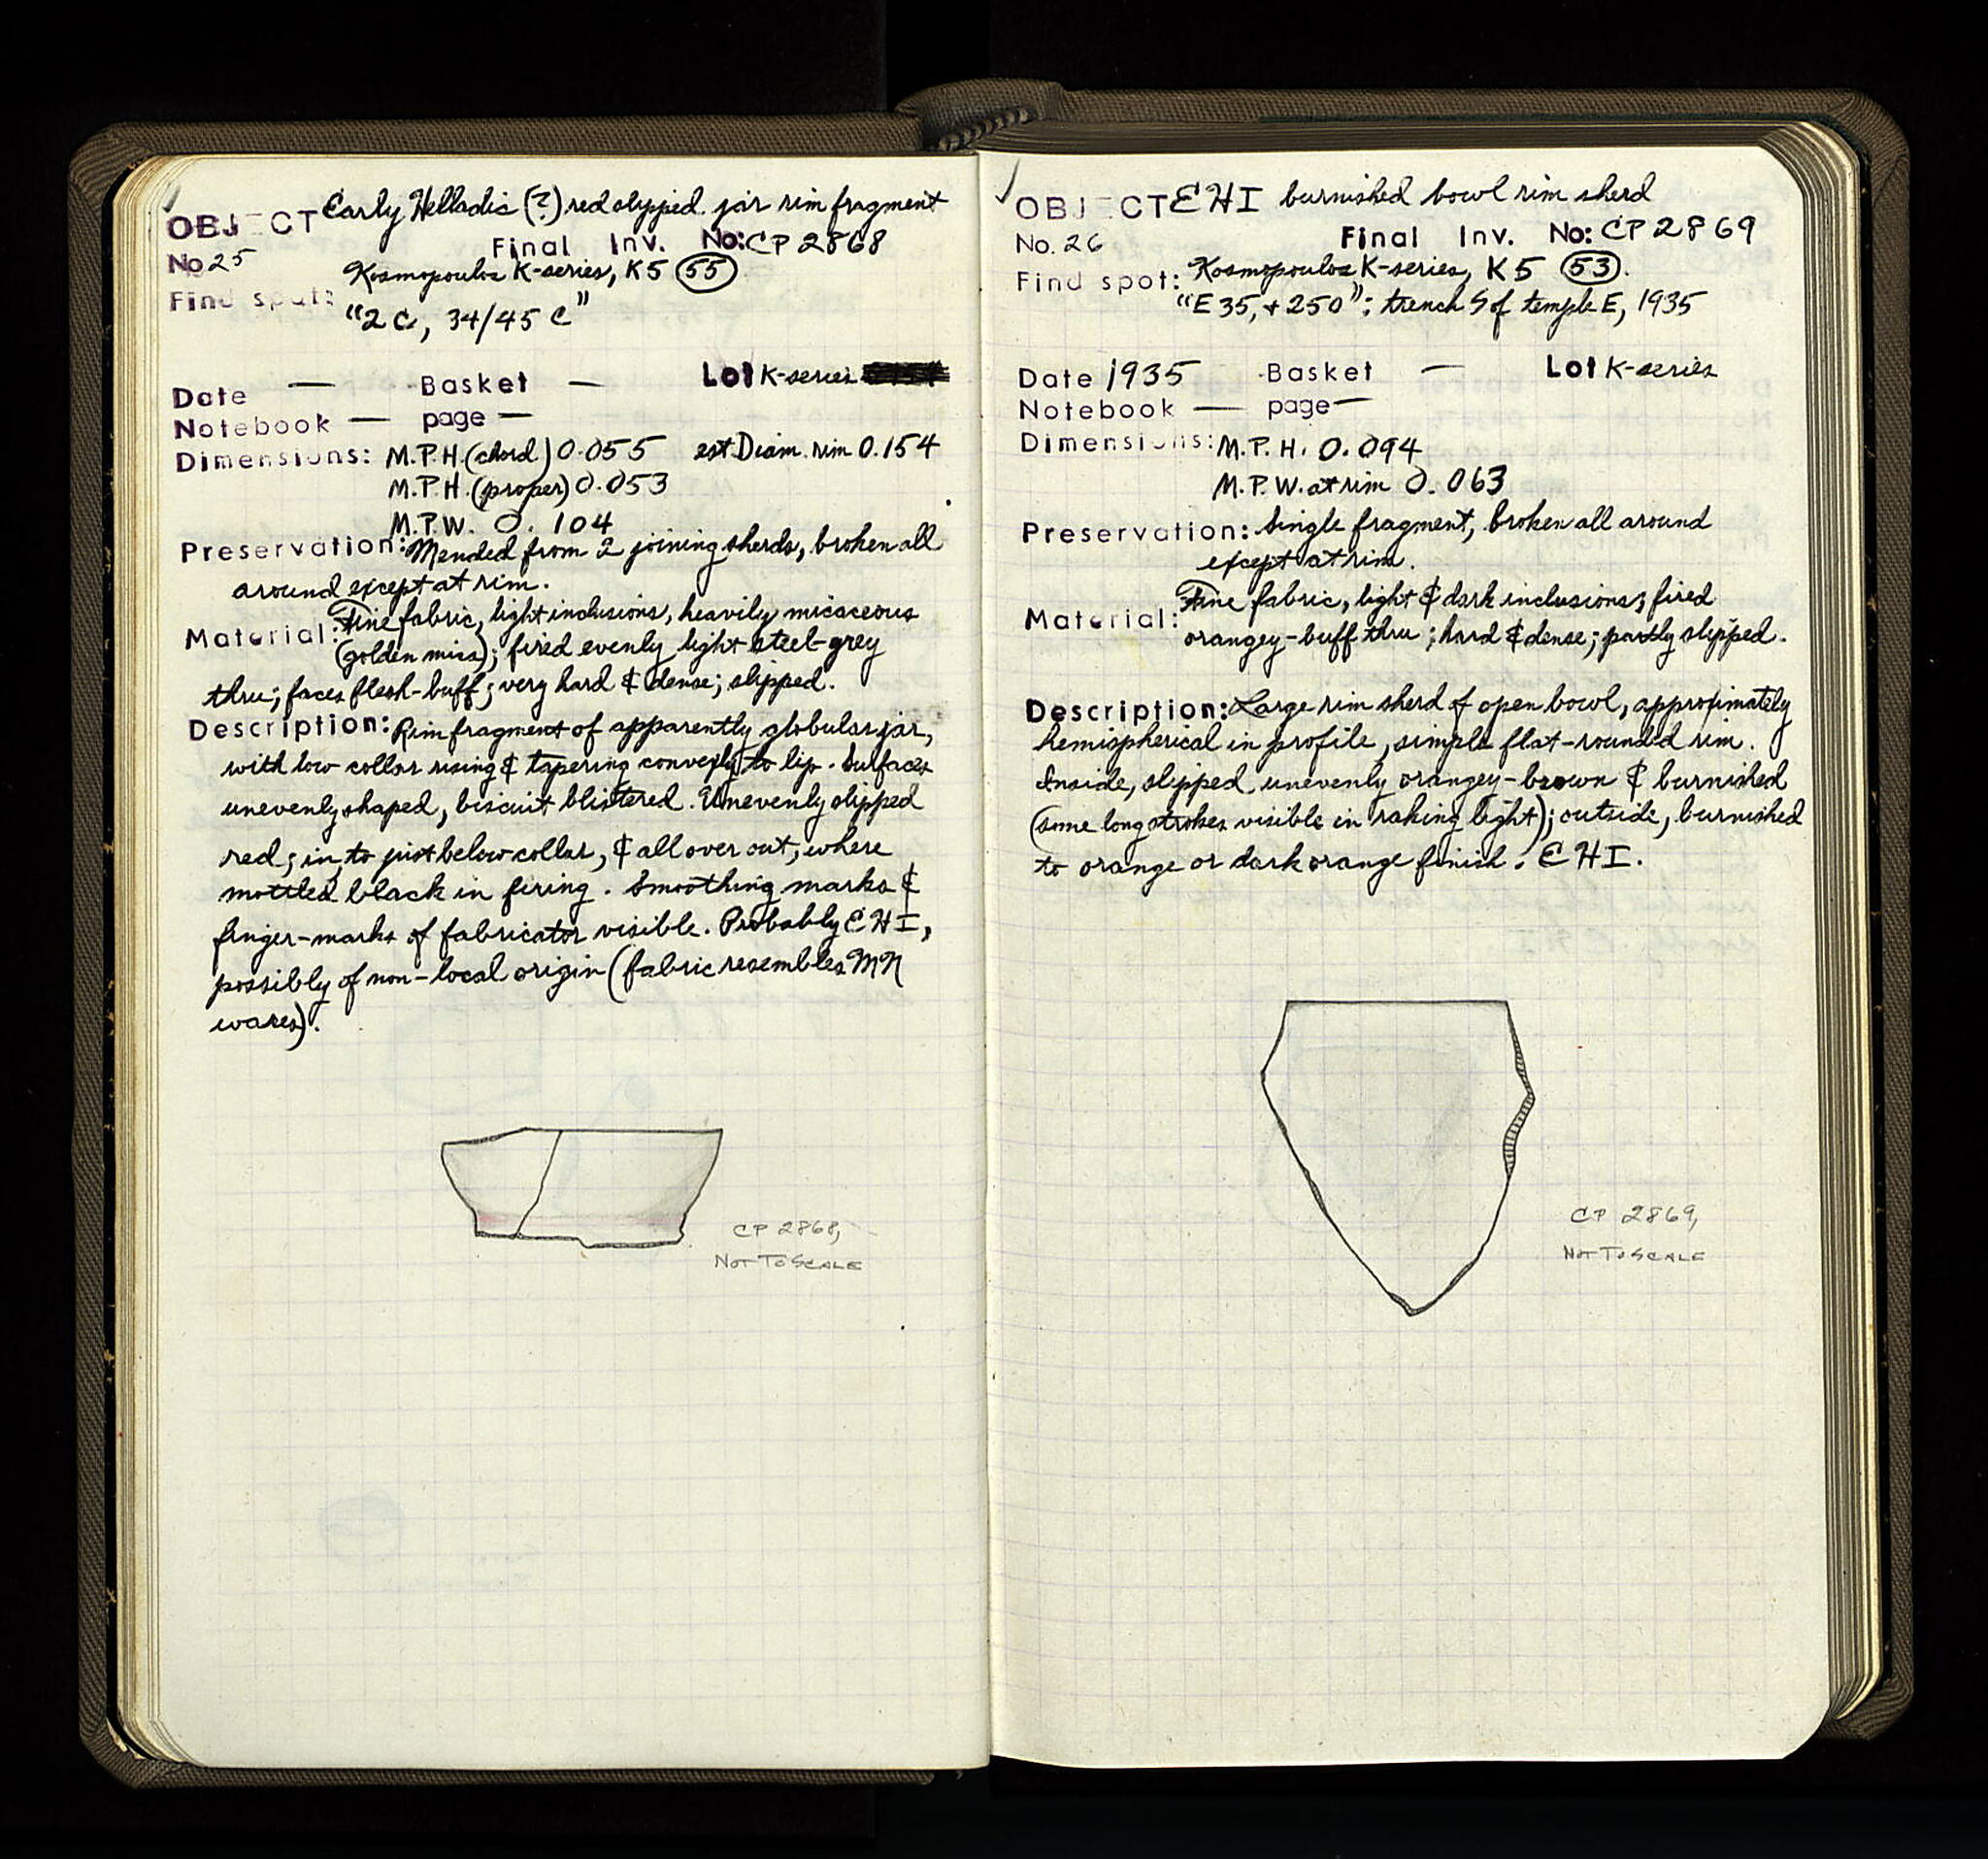 OBJECT Early Helladic (?) red slipped jar rim fragment
Final Inv. No: CP 2868
No 25
Kosmopoulos K-series, K5 (55)
Find spot:
"2 C, 34/45 C"
Date — Basket — Lot K-series
Notebook — page —
Dimensions: M.P.H. (chord) 0.055 est. Diam. rim 0.154
M.P.H. (proper) 0.053
M.P.W. 0.104
Preservation: Mended from 2 joining sherds, broken all
around except at rim.
Material: Fine fabric, light inclusions, heavily micaceous
(golden mica); fired evenly light steel-grey
thru; faces flesh-buff; very hard & dense; slipped.
Description: Rim fragment of apparently globular jar,
with low collar rising & tapering convexly to lip. Surfaces
unevenly shaped, biscuit blistered. Unevenly slipped
red; in, to just below collar, & all over out, where
mottled black in firing. Smoothing marks &
finger-marks of fabricator visible. Probably EHI,
possibly of non-local origin (fabric resembles MN
wares).
CP 2868,
NOT TO SCALE
OBJECT EHI burnished bowl rim sherd
No. 26 Final Inv. No: CP 2869
Find spot: Kosmopoulos K-series, K5 (53).
"E 35, + 250": trench S of temple E, 1935
Date 1935 Basket — Lot K-series
Notebook — page —
Dimensions: M.P.H. 0.094
M.P.W. at rim 0.063
Preservation: Single fragment, broken all around
except at rim.
Material: Fine fabric, light & dark inclusions; fired
orangey-buff thru; hard & dense; partly slipped.
Description: Large rim sherd of open bowl, approximately
hemispherical in profile, simple flat-rounded rim.
Inside, slipped unevenly orangey-brown & burnished
(some long strokes visible in raking light); outside, burnished
to orange or dark orange finish. EHI.
CP 2869,
NOT TO SCALE